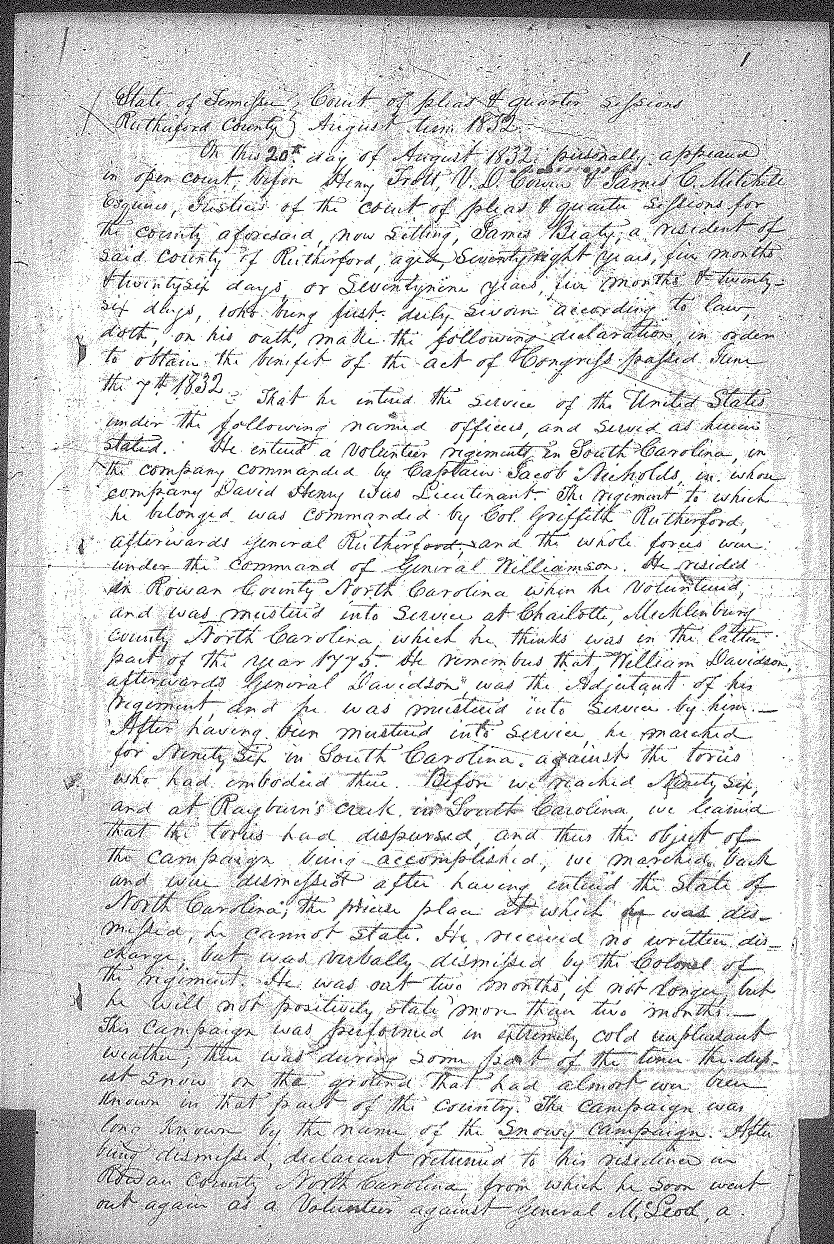 1
State of Tennessee } Court of pleas & quarter Sessions
Rutherford County } August term 1832.
On this 20th day of August 1832, personally appeared
in open court, before Henry Trott, V. D. Cowan & James C. Mitchell
Esquires, Justices of the court of pleas & quarter Sessions for
the county aforesaid, now sitting, James Beaty, a resident of
said county of Rutherford, aged Seventyeight years, five months
& twentysix days or Seventynine years, five months & twenty-
six days, who being first duly sworn according to law,
doth, on his oath, make the following declaration, in order
to obtain the benefit of the act of Congress passed June
the 7th 1832. That he entered the service of the United States
under the following named officers, and served as herein
stated. He entered a volunteer regiment, in South Carolina, in
the company commanded by Captain Jacob Nicholds, in whose
company David Henry was Lieutenant. The regiment to which
he belonged was commanded by Col. Griffith Rutherford,
afterwards general Rutherford, and the whole forces were
under the command of General Williamson. He resided
in Rowan County North Carolina when he volunteered,
and was mustered into service at Charlotte, Mecklenburg
county, North Carolina, which he thinks was in the latter
part of the year 1775. He remembers that William Davidson,
afterwards General Davidson, was the Adjutant of his
regiment, and he was mustered into service by him.—
After having been mustered into service, he marched
for Ninety Six in South Carolina, against the tories
who had embodied there. Before we reached Ninety Six,
and at Rayburn's creek in South Carolina, we learned
that the tories had dispursed, and thus the object of
the campaign being accomplished, we marched back
and were dismissed after having entered the State of
North Carolina; the precise place at which he was dis-
missed, he cannot state. He received no written dis-
charge, but was verbally dismissed by the Colonel of
the regiment. He was out two months, if not longer, but
he will not positively state more than two months.—
This campaign was performed in extremely cold unpleasant
weather; there was during some part of the time the deep-
est snow on the ground that had almost ever been
known in that part of the country. The campaign was
long known by the name of the Snowy campaign. After
being dismissed, declarant returned to his residence in
Rowan county North Carolina, from which he soon went
out again as a Volunteer against General McLeod, a